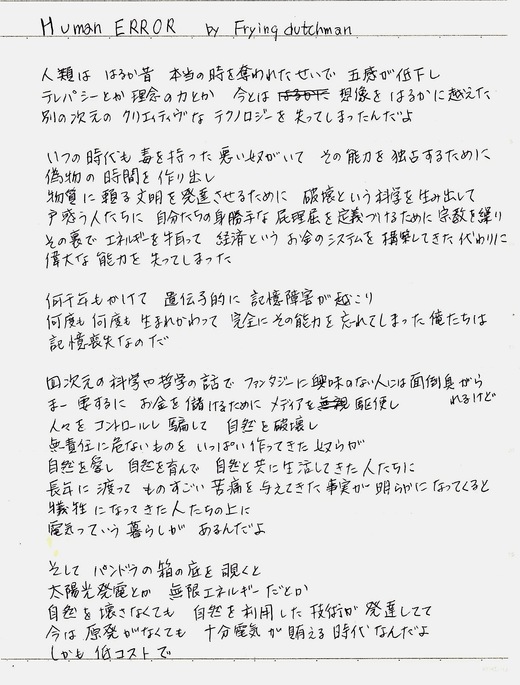 Human ERROR by Frying dutchman
人類は はるか昔 本当の時を奪われたせいで 五感が低下し
テレパシーとか 理念の力とか 今とは 想像を はるかに越えた
別の次元の クリエイティヴな テクノロジーを 失ってしまったんだよ
いつの時代も 毒を持った 悪い奴がいて その能力を 独占するために
偽物の 時間を 作り出し
物質に 頼る文明を 発達させるために 破壊という科学を 生み出して
戸惑う人たちに 自分たちの身勝手な 屁理屈を 定義づけるために 宗教を 操り
その裏で エネルギーを 牛耳って 経済という お金のシステムを 構築してきた 代わりに
偉大な 能力を 失ってしまった
何千年もかけて 遺伝子的に 記憶障害が 起こり
何度も 何度も 生まれかわって 完全に その能力を 忘れてしまった 俺たちは
記憶喪失なのだ
四次元の 科学や 哲学の 話で ファンタジーに 興味のない人には 面倒臭がられるけど
まー 要するに お金を 儲けるために メディアを 駆使し
人々を コントロールし 騙して 自然を 破壊し
無責任に 危ないものを いっぱい 作ってきた 奴らが
自然を愛し 自然を育んで 自然と共に 生活してきた 人たちに
長年に 渡って ものすごい 苦痛を 与えてきた 事実が 明らかに なってくると
犠牲に なってきた 人たちの上に
電気っていう 暮らしが あるんだよ
そして パンドラの 箱の 底を 覗くと
太陽光発電とか 無限エネルギーだとか
自然を 壊さなくても 自然を 利用した 技術が 発達してて
今は 原発がなくても 十分電気が 賄える 時代 なんだよ
しかも 低コストで